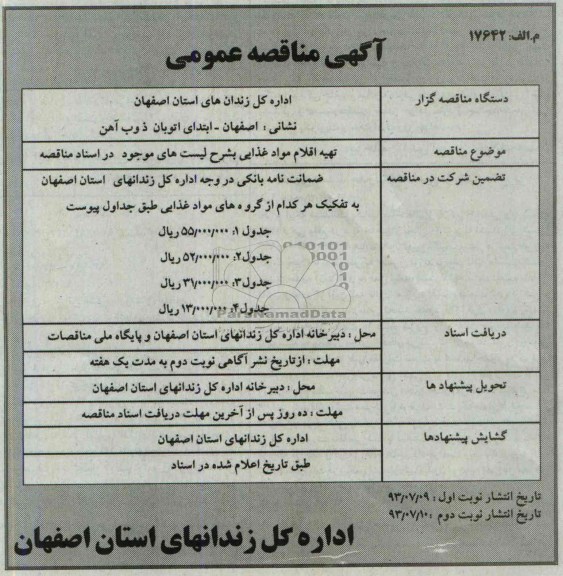 م.الف: ۱۷۶۴۲
آگهی مناقصه عمومی
دستگاه مناقصه گزار
اداره کل زندان های استان اصفهان
نشانی : اصفهان - ابتدای اتوبان ذوب آهن
موضوع مناقصه
تهیه اقلام مواد غذایی بشرح لیست های موجود در اسناد مناقصه
تضمین شرکت در مناقصه
ضمانت نامه بانکی در وجه اداره کل زندانهای استان اصفهان
به تفکیک هر کدام از گروه های مواد غذایی طبق جداول پیوست
جدول ۱: ۵۵/۰۰۰/۰۰۰ ریال
جدول۲: ۵۲/۰۰۰/۰۰۰ ریال
جدول۳: ۳۱/۰۰۰/۰۰۰ ریال
جدول۴: ۱۳/۰۰۰/۰۰۰ ریال
ParsNamadData
دریافت اسناد
محل : دبیرخانه اداره کل زندانهای استان اصفهان و پایگاه ملی مناقصات
مهلت : از تاریخ نشر آگاهی نوبت دوم به مدت یک هفته
تحویل پیشنهاد ها
محل : دبیرخانه اداره کل زندانهای استان اصفهان
مهلت : ده روز پس از آخرین مهلت دریافت اسناد مناقصه
گشایش پیشنهادها
اداره کل زندانهای استان اصفهان
طبق تاریخ اعلام شده در اسناد
تاریخ انتشار نوبت اول : ۹۳/۰۷/۰۹
تاریخ انتشار نوبت دوم : ۹۳/۰۷/۱۰
اداره کل زندانهای استان اصفهان